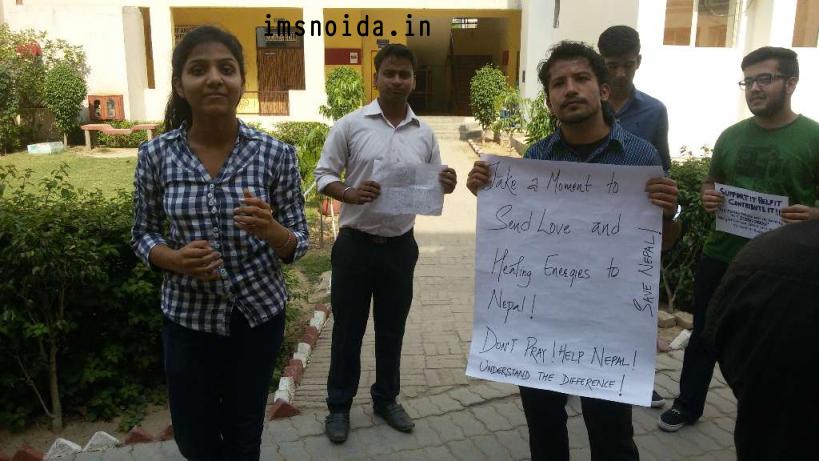 imsnoida.in
Take a Moment to
Send Love and
Healing Energies to
Nepal!
Don't Pray! Help Nepal!
Understand the Difference!
Save Nepal!
SUPPORT IT HELP IT
CONTRIBUTE IT!!